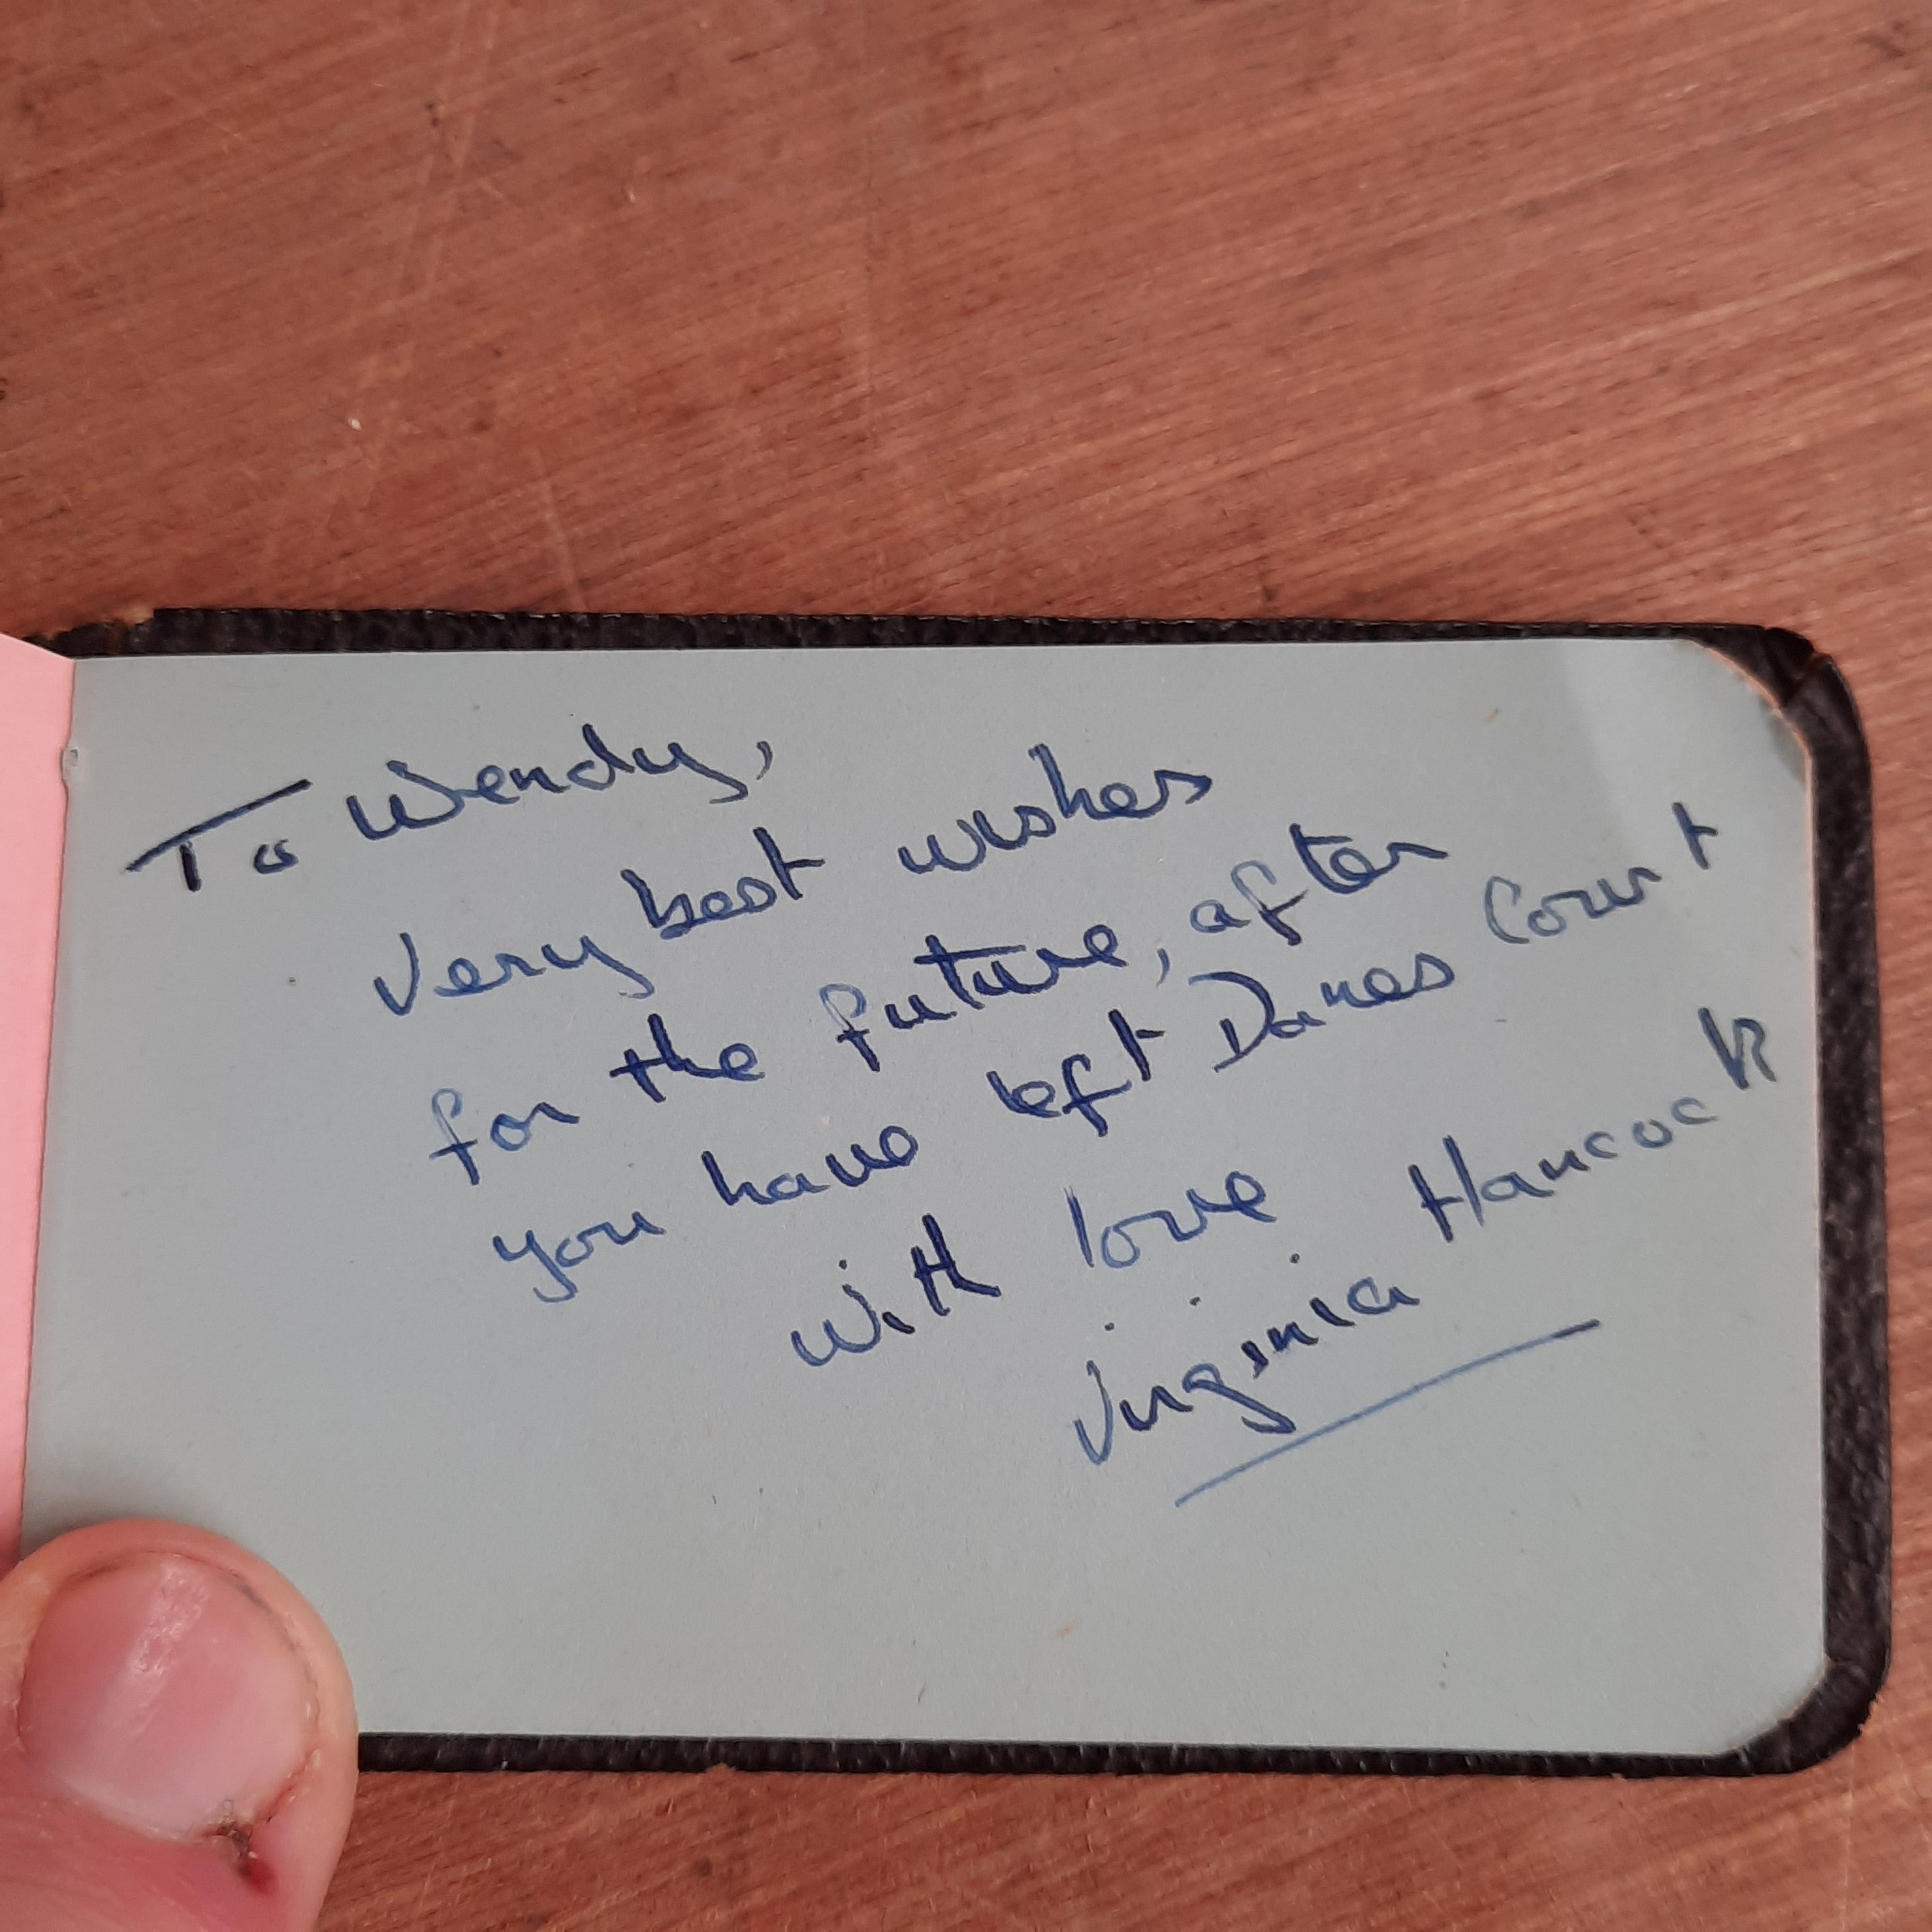 To Wendy,
Very best wishes
for the future, after
you have left Danes Court
with love
Virginia Hancock